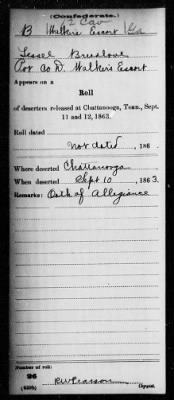 (Confederate.)
2 Cav
B Walker's Escort Ga
Breslove
Pvt Co D. Walker's Escort
Appears on a
Roll
of deserters released at Chattanooga, Tenn., Sept.
11 and 12, 1863.
Roll dated
Not dated, 186 .
Where deserted Chattanooga
When deserted Sept 10, 1863.
Remarks: Oath of Allegiance
Number of roll:
26
R W Pearson
(639b) Copyist.